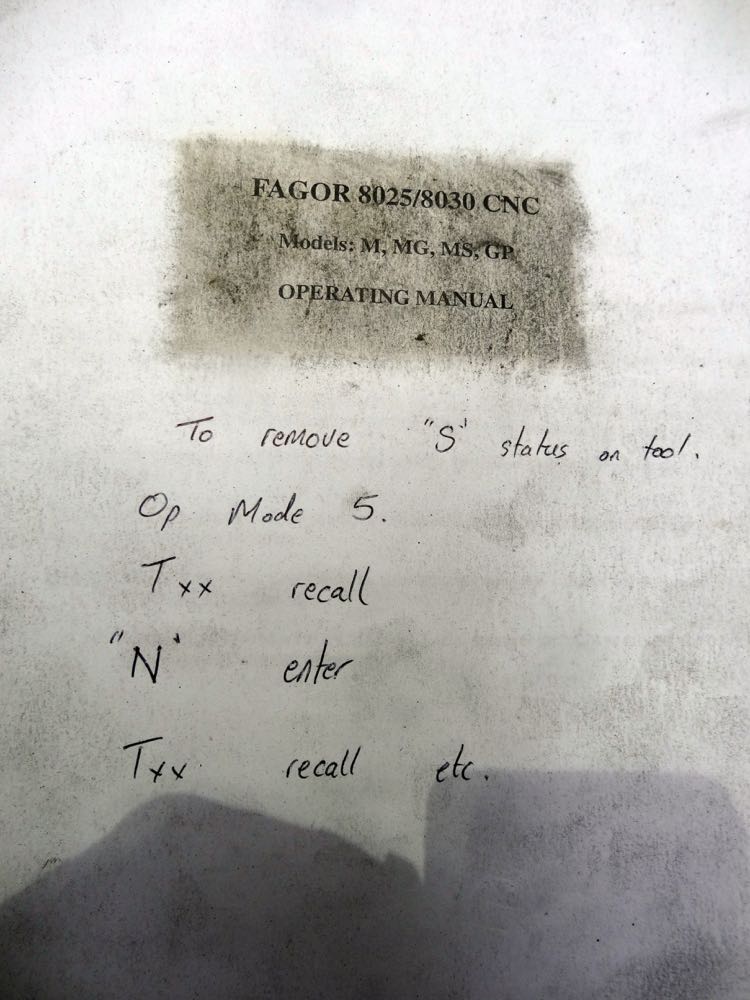 FAGOR 8025/8030 CNC
Models: M, MG, MS, GP
OPERATING MANUAL
To remove "S" status on tool.
Op Mode 5.
Txx recall
"N" enter
Txx recall etc.